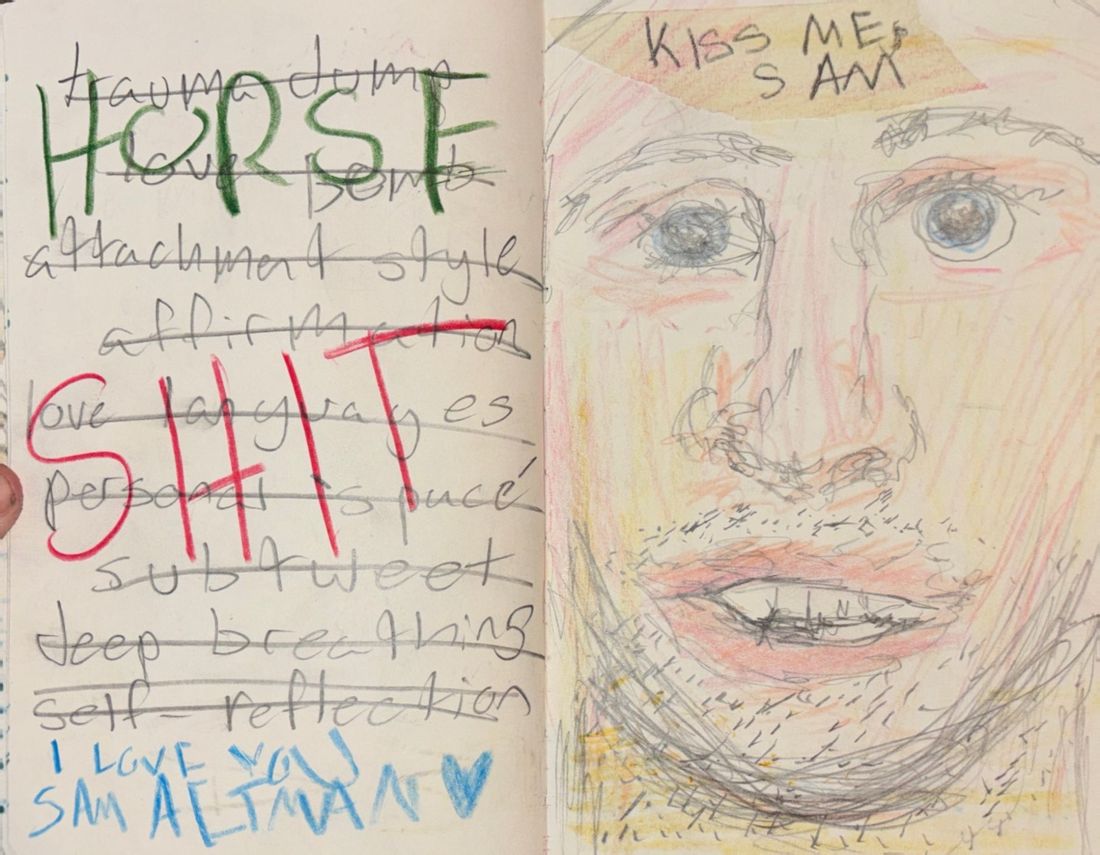 trauma dump
HORSE
love bomb
attachment style
affirmation
SHIT
love languages
personal space
subtweet
deep breathing
self-reflection
I LOVE YOU
SAM ALTMAN
KISS ME,
SAM